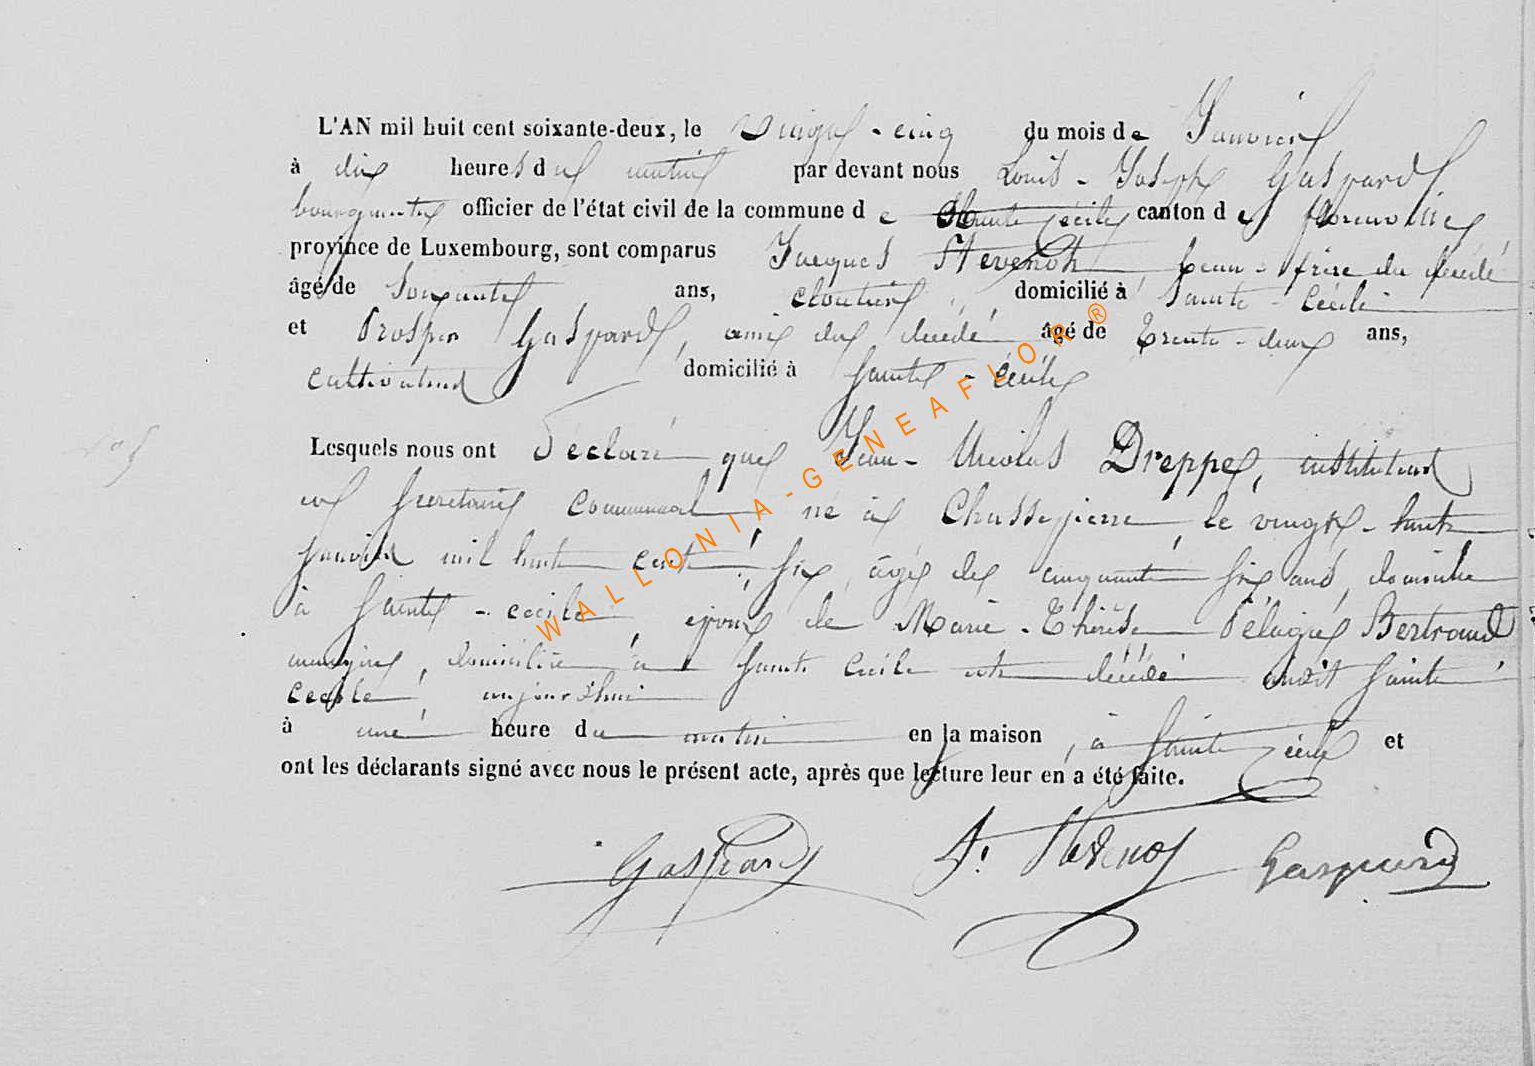 L'AN mil huit cent soixante-deux, le vingt-cinq du mois de Janvier
à dix heures du matin par devant nous Louis-Joseph Gaspard
bourgmestre officier de l'état civil de la commune de Sainte-Cécile canton de Florenville
province de Luxembourg, sont comparus Jacques Stévenot, beau-frère du décédé
âgé de soixante ans, cloutier, domicilié à Sainte-Cécile
et Prosper Gaspard, ami du décédé âgé de trente-deux ans,
cultivateur domicilié à Sainte-Cécile
Lesquels nous ont déclaré que Jean-Nicolas Dreppe, instituteur
et secrétaire communal né à Chassepierre, le vingt-huit
janvier mil huit cent six, âgé de cinquante six ans, domicilié
à Sainte-Cécile, époux de Marie-Thérèse Pélagie Bertrand
ménagère, domiciliée à Sainte Cécile est décédé audit Sainte
Cécile, aujourd'hui
à une heure du matin en la maison, à Sainte Cécile et
ont les déclarants signé avec nous le présent acte, après que lecture leur en a été faite.
Gaspard J. Stévenot Gaspard
WALLONIA-GENEAFLOR ®